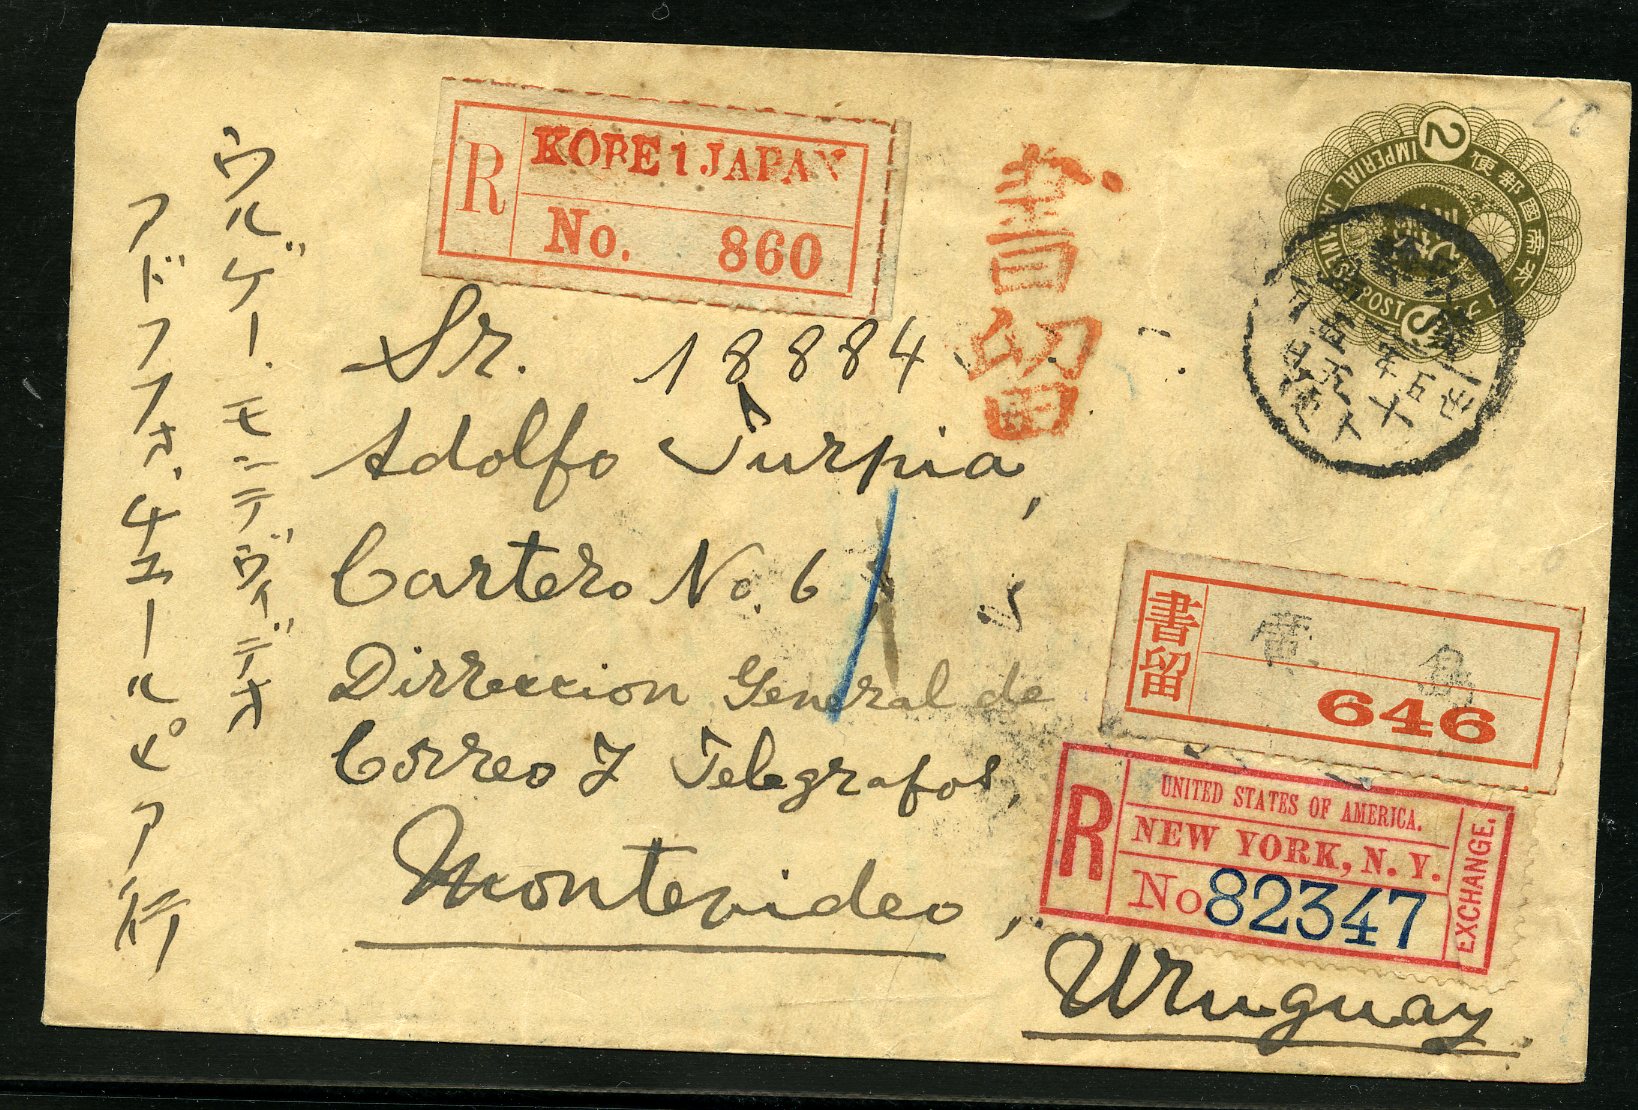 R
KOBE 1 JAPAN
No. 860
書留
2
IMPERIAL JAPANESE POST
Sr. 18884
Adolfo Turpia,
Cartero No. 6
Dirreccion General de
Correo Y Telegrafos,
Montevideo,
Uruguay.
ウルゲー.モンテヴィデオ
アドフフォ.チュールピア行
書留
646
R
UNITED STATES OF AMERICA.
NEW YORK, N. Y.
No 82347
EXCHANGE.